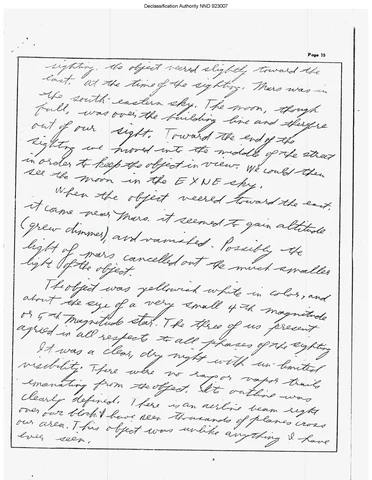 Declassification Authority NND 923007
Page 10
sighting. the object veered slightly toward the
east. at the time of the sighting. Mars was in
the south eastern sky. The moon, though
full, was over the building line and therfore
out of our sight. Toward the end of the
sighting we moved into the middle of the street
in order to keep the object in view. We could then
see the moon in the EXNE sky.
When the object veered toward the east.
it came near Mars. it seemed to gain altitude
(grew dimmer), and vanished. Possibly the
light of mars cancelled out the much smaller
light of the object.
The object was yellowish white in color, and
about the size of a very small 4th magnitude
or 5th magnitude star. The three of us present
agreed in all respects to all phases of the sighting
It was a clear, dry night with un limited
visibility. There were no rays or vapor trails
emanating from the object. Its outline was
clearly defined. There is an airline beam right
over our block & have seen thousands of planes cross
our area. This object was unlike anything I have
ever seen.